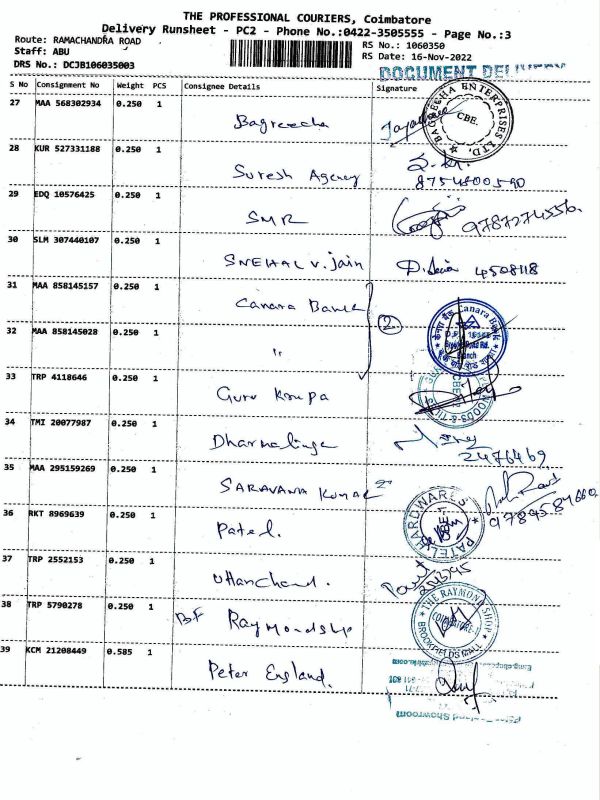 THE PROFESSIONAL COURIERS, Coimbatore
Delivery Runsheet - PC2 - Phone No.:0422-3505555 - Page No.:3
Route: RAMACHANDRA ROAD RS No.: 1060350
Staff: ABU RS Date: 16-Nov-2022
DRS No.: DCJB106035003
DOCUMENT
S No Consignment No Weight PCS Consignee Details Signature
27 MAA 568302934 0.250 1 Bagreecha
BAGREECHA ENTERPRISES LTD. CBE.
28 KUR 527331188 0.250 1 Suresh Agency
8754800590
29 EDQ 10576425 0.250 1 SMR 9787274556
30 SLM 307440107 0.250 1 SNEHAL V. Jain 4508118
31 MAA 858145157 0.250 1 Canara Bank
2 Canara Bank Branch
32 MAA 858145028 0.250 1 "
33 TRP 4118646 0.250 1 Guru Krupa
34 TMI 20077987 0.250 1 Dharmalinga 2476469
35 MAA 295159269 0.250 1 SARAVANA KUMAR
36 RKT 8969639 0.250 1 Patel.
PATEL HARDWARES
37 TRP 2552153 0.250 1 Uttanchand.
38 TRP 5790278 0.250 1 BF Raymondship
THE RAYMOND SHOP COIMBATORE BROOKFIELDS MALL
39 KCM 21208449 0.585 1 Peter England.
Showroom